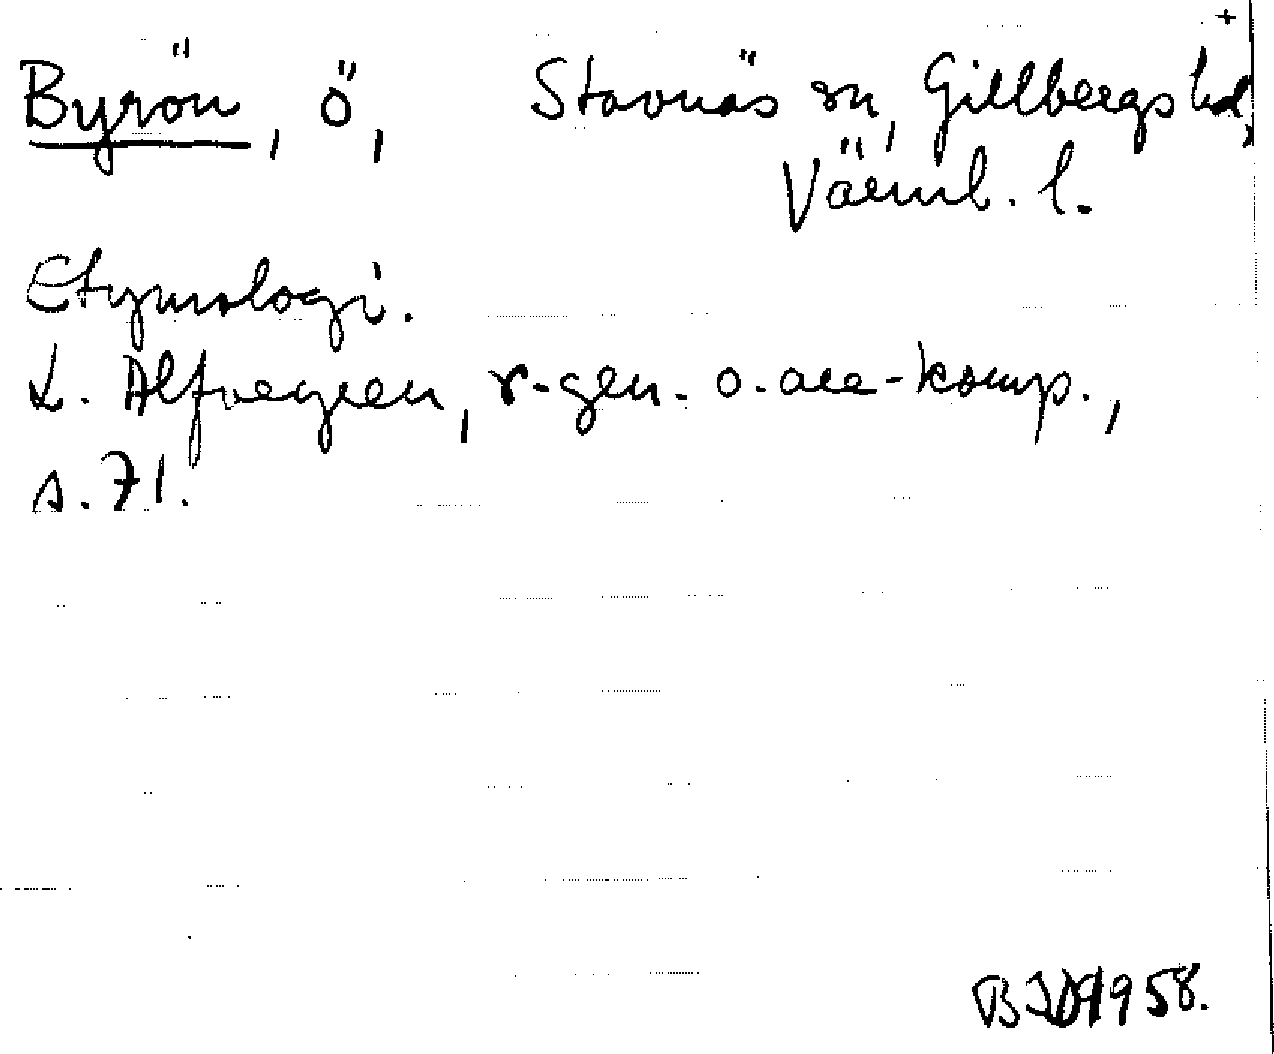 +
Byrön, ö, Stavnäs sn, Gillbergs hd,
Värml. l.
Etymologi.
L. Alfvegren, r-gen. o. are-komp.,
s. 71.
1958.